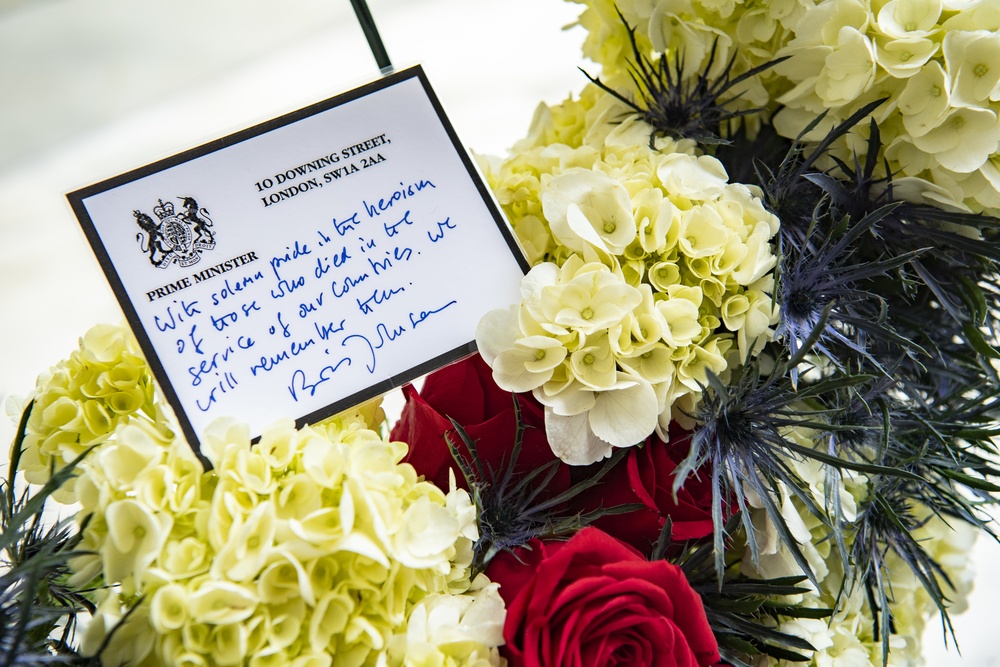 10 DOWNING STREET,
LONDON, SW1A 2AA
PRIME MINISTER
With solemn pride in the heroism
of those who died in the
service of our countries. We
will remember them.
Boris Johnson